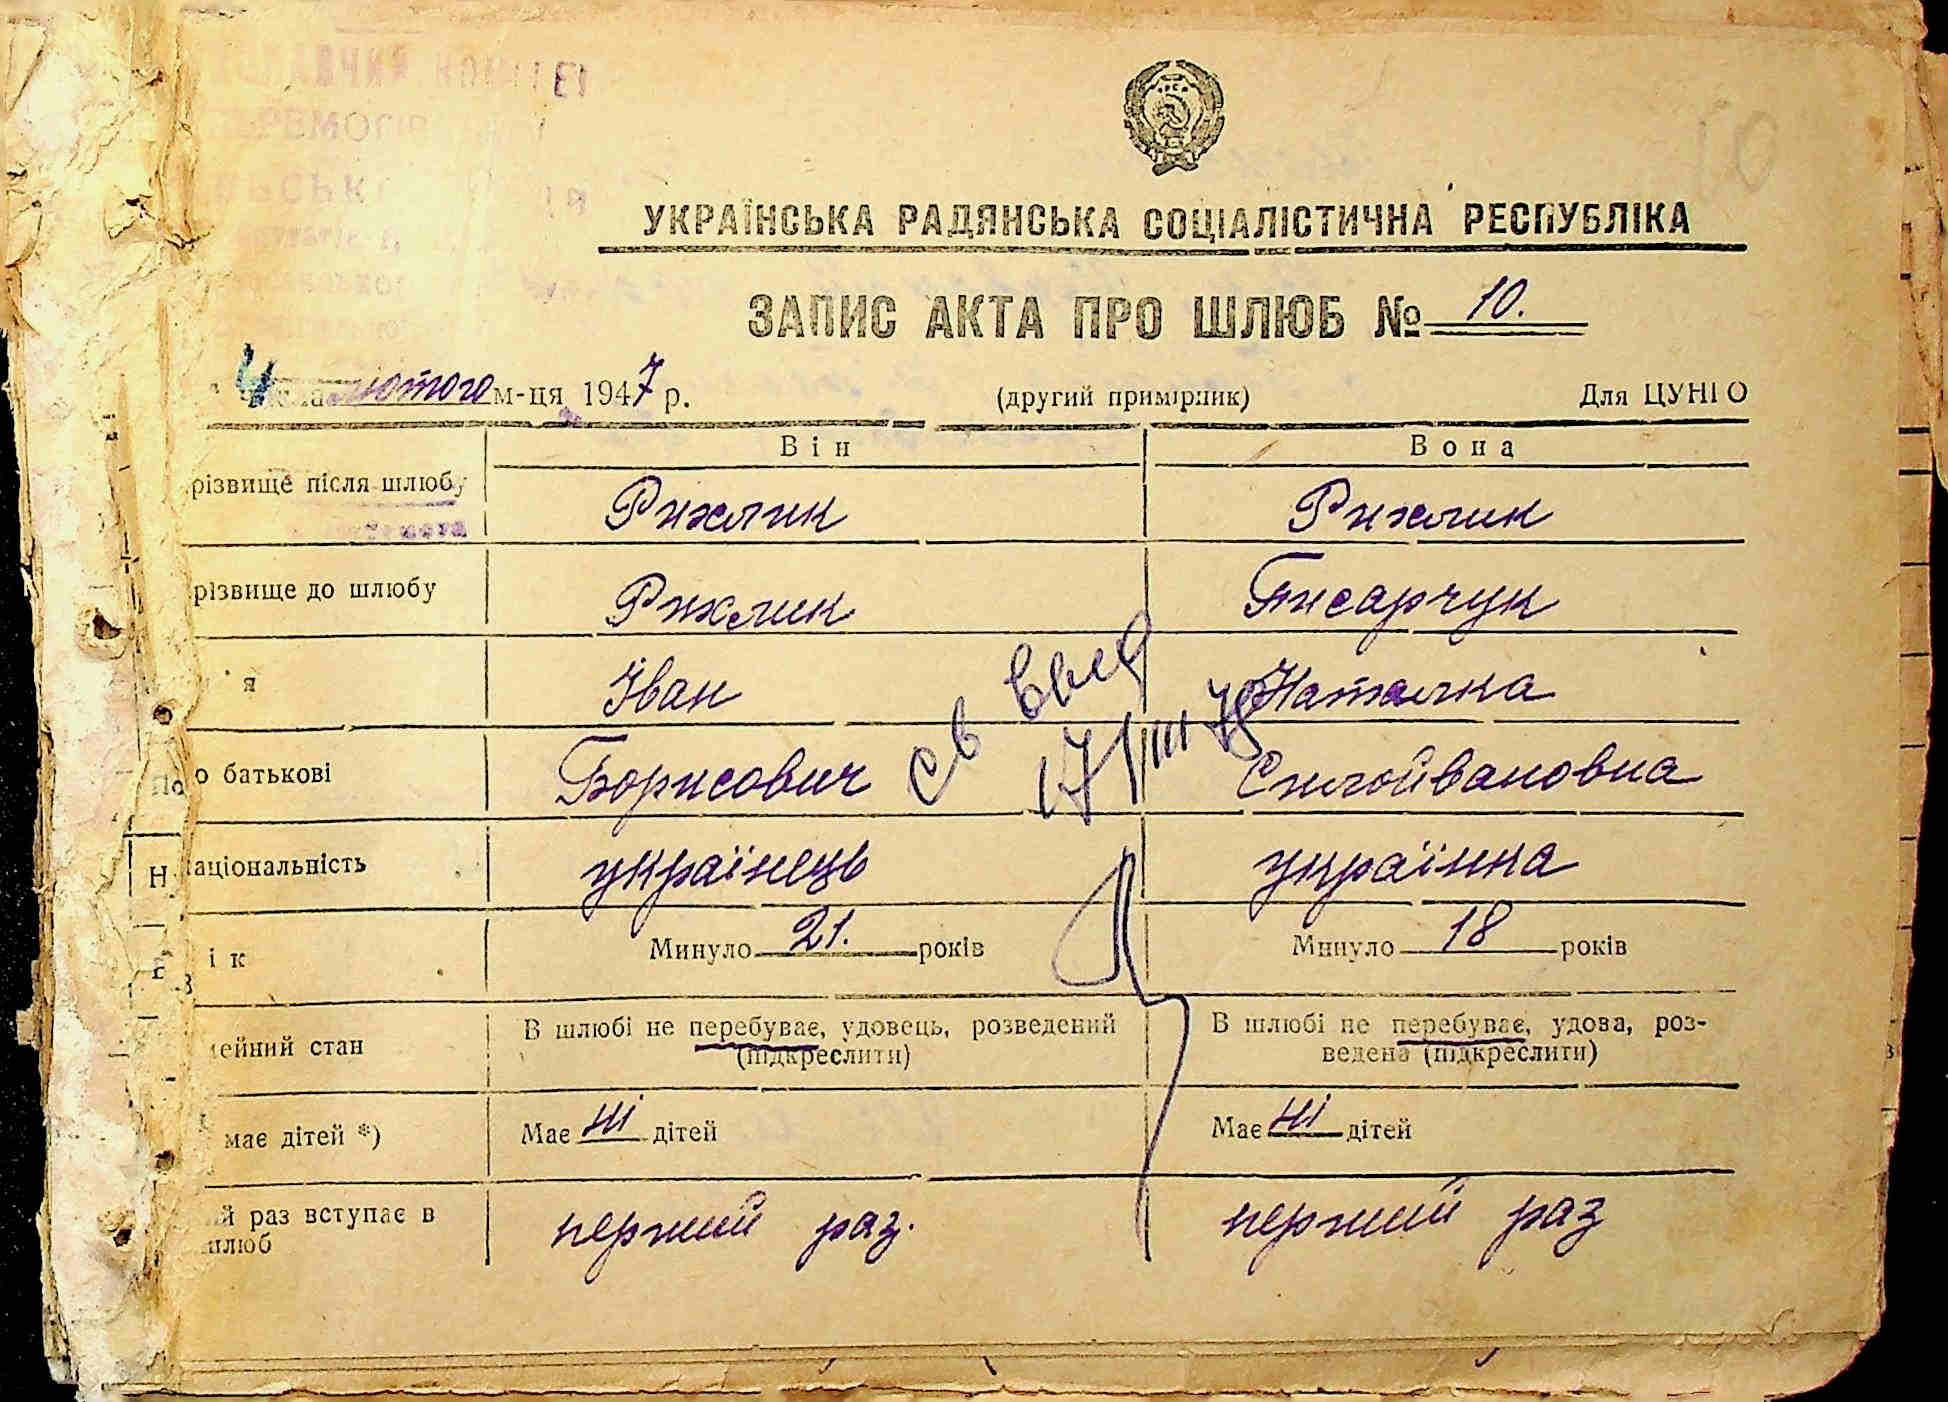 УКРАЇНСЬКА РАДЯНСЬКА СОЦІАЛІСТИЧНА РЕСПУБЛІКА
ЗАПИС АКТА ПРО ШЛЮБ № 10.
4 лютого м-ця 1947 р. (другий примірник) Для ЦУНГО
Він Вона
різвище після шлюбу Рихлик Рихлик
різвище до шлюбу Рихлик Писарчук
я Іван Наталка
По батькові Борисович Силойвановна
Національність українець українка
Вік Минуло 21. років Минуло 18 років
св выд
17/III 78
мейний стан В шлюбі не перебуває, удовець, розведений (підкреслити) В шлюбі не перебуває, удова, роз-
ведена (підкреслити)
має дітей *) Має ні дітей Має ні дітей
й раз вступає в
шлюб перший раз. перший раз